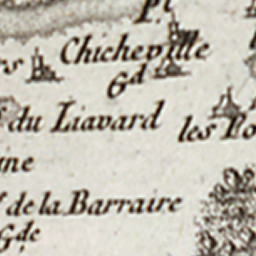 Pt
Chicheville
rs
Gd
du Liavard
les Po
ine
de la Barraire
Gde